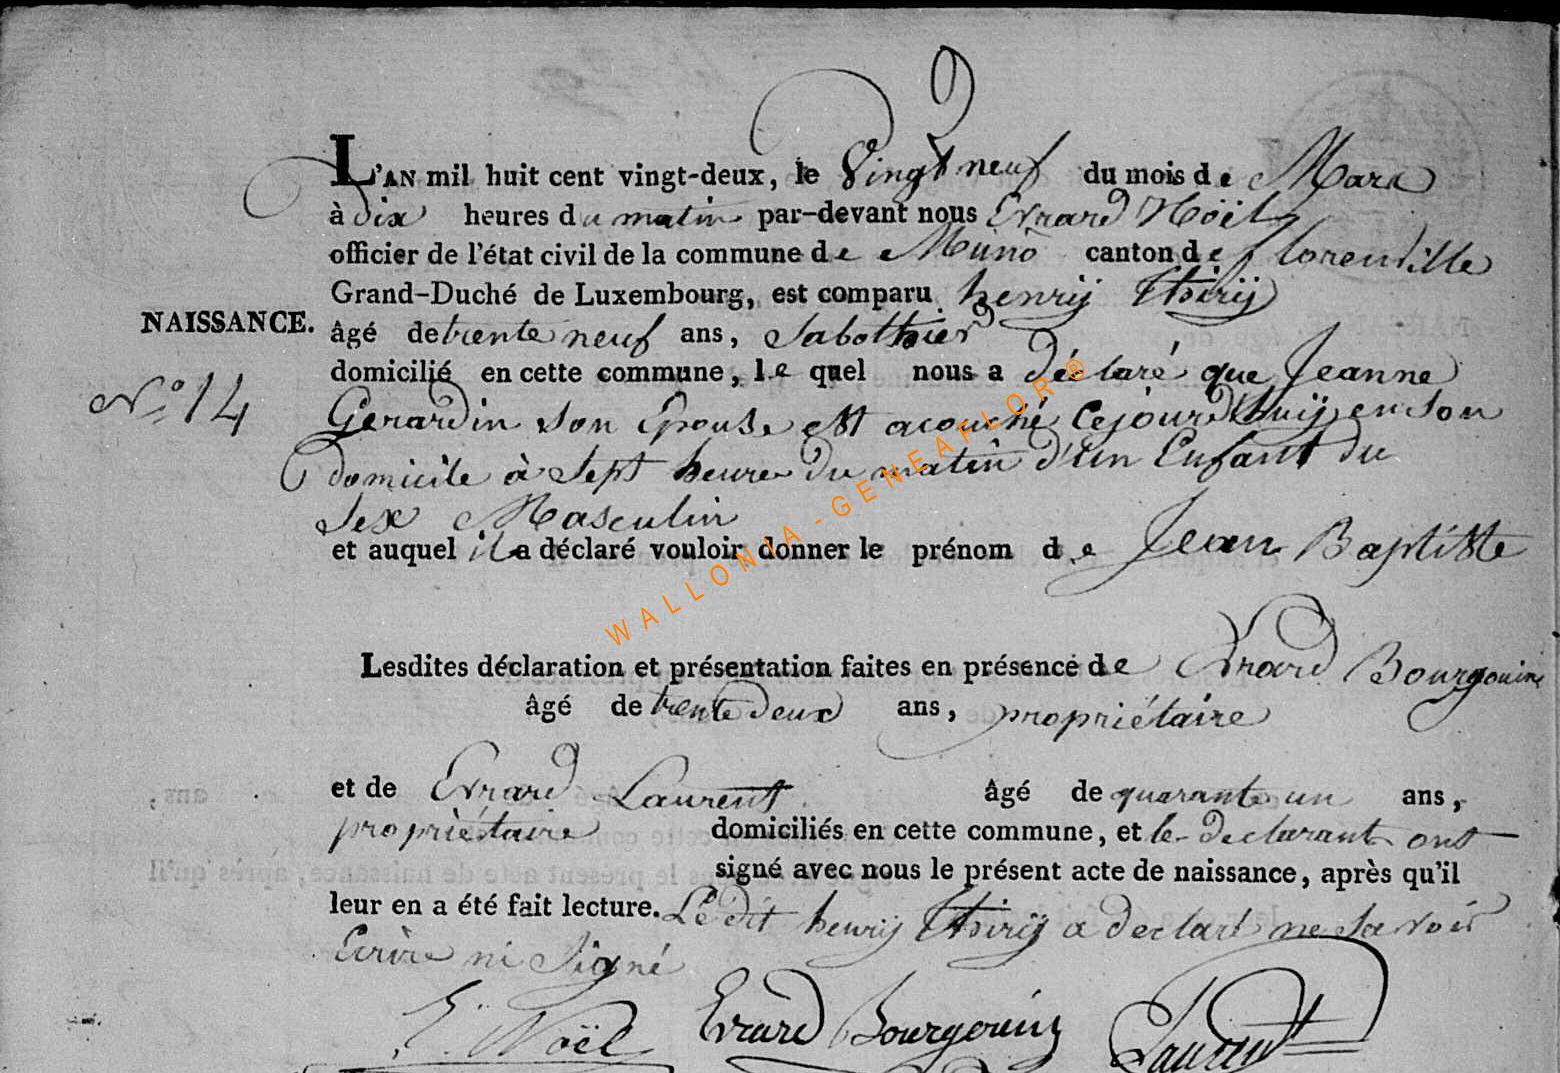 L'AN mil huit cent vingt-deux, le Vingt neuf du mois de Mara
à dix heures du matin par-devant nous Evrard Noël
officier de l'état civil de la commune de Muno canton de florenville
Grand-Duché de Luxembourg, est comparu henrij thirij
NAISSANCE.
âgé de trente neuf ans, Sabothier
domicilié en cette commune, le quel nous a déclaré que Jeanne
N.° 14
Gerardin son Epouse est acouché Cejourd'huij en son
domicile à Sept heure du matin d'un Enfant du
Sex Masculin
et auquel il a déclaré vouloir donner le prénom de Jean Baptiste
WALLONIA-GENEAFLOR®
Lesdites déclaration et présentation faites en présence de Evrard Bourgouin
âgé de trente deux ans, propriétaire
et de Evrard Laurent âgé de quarante un ans,
propriétaire domiciliés en cette commune, et le declarant ont
signé avec nous le présent acte de naissance, après qu'il
leur en a été fait lecture. Le dit henrij thirij a declaré ne Savoir
Ecrire ni Signé
E. Noël Evrard Bourgouin Laurent